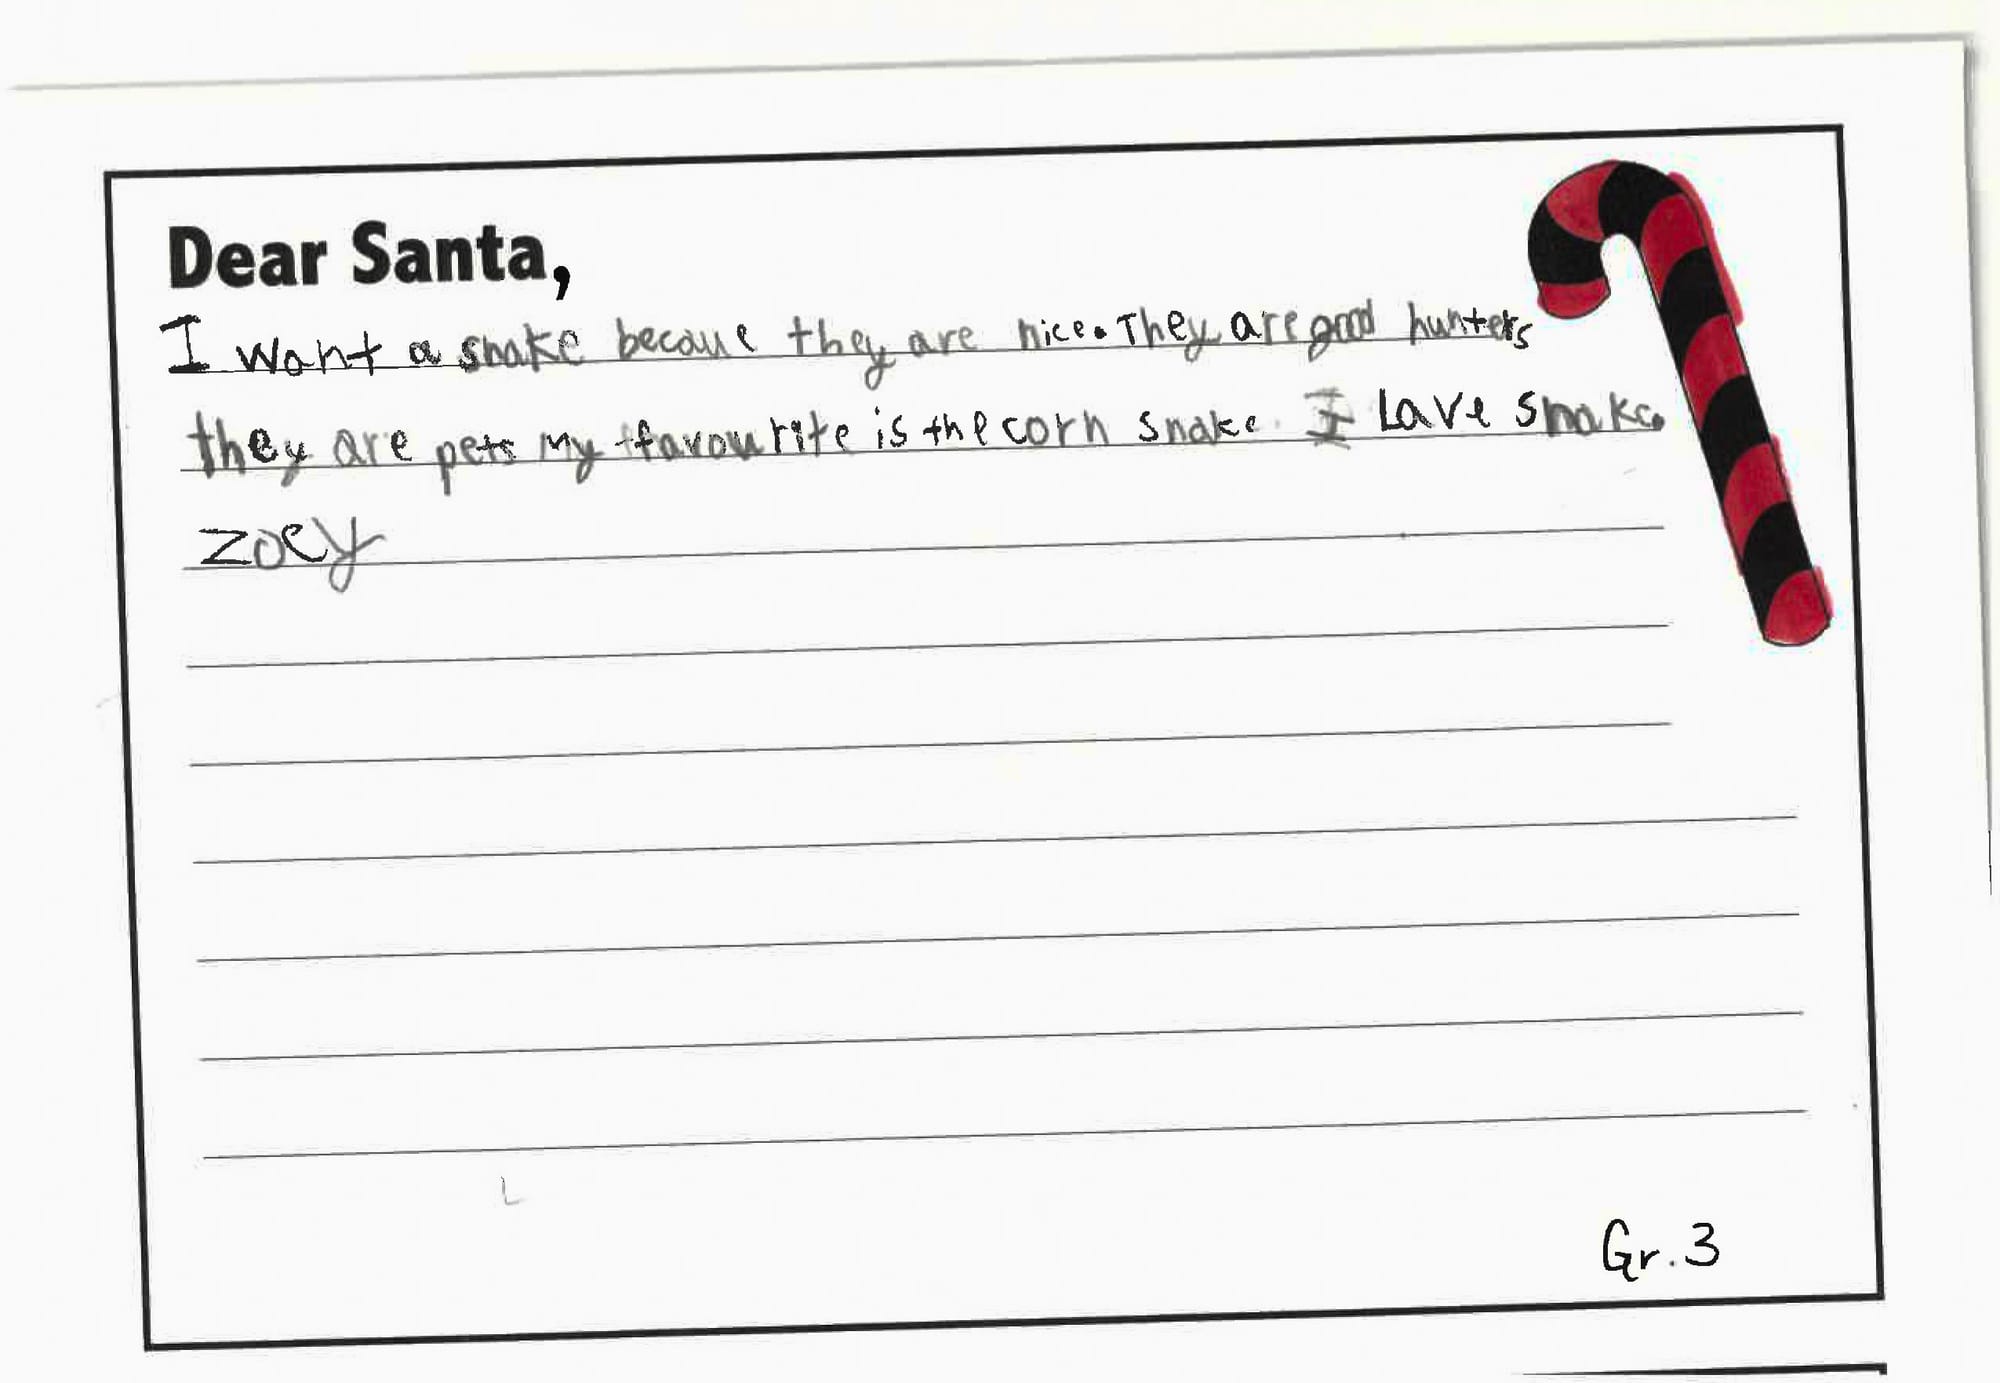 Dear Santa,
I want a snake becaue they are nice. They are good hunters
they are pets My favourite is the corn snake. I Lave snake.
zoey
Gr. 3